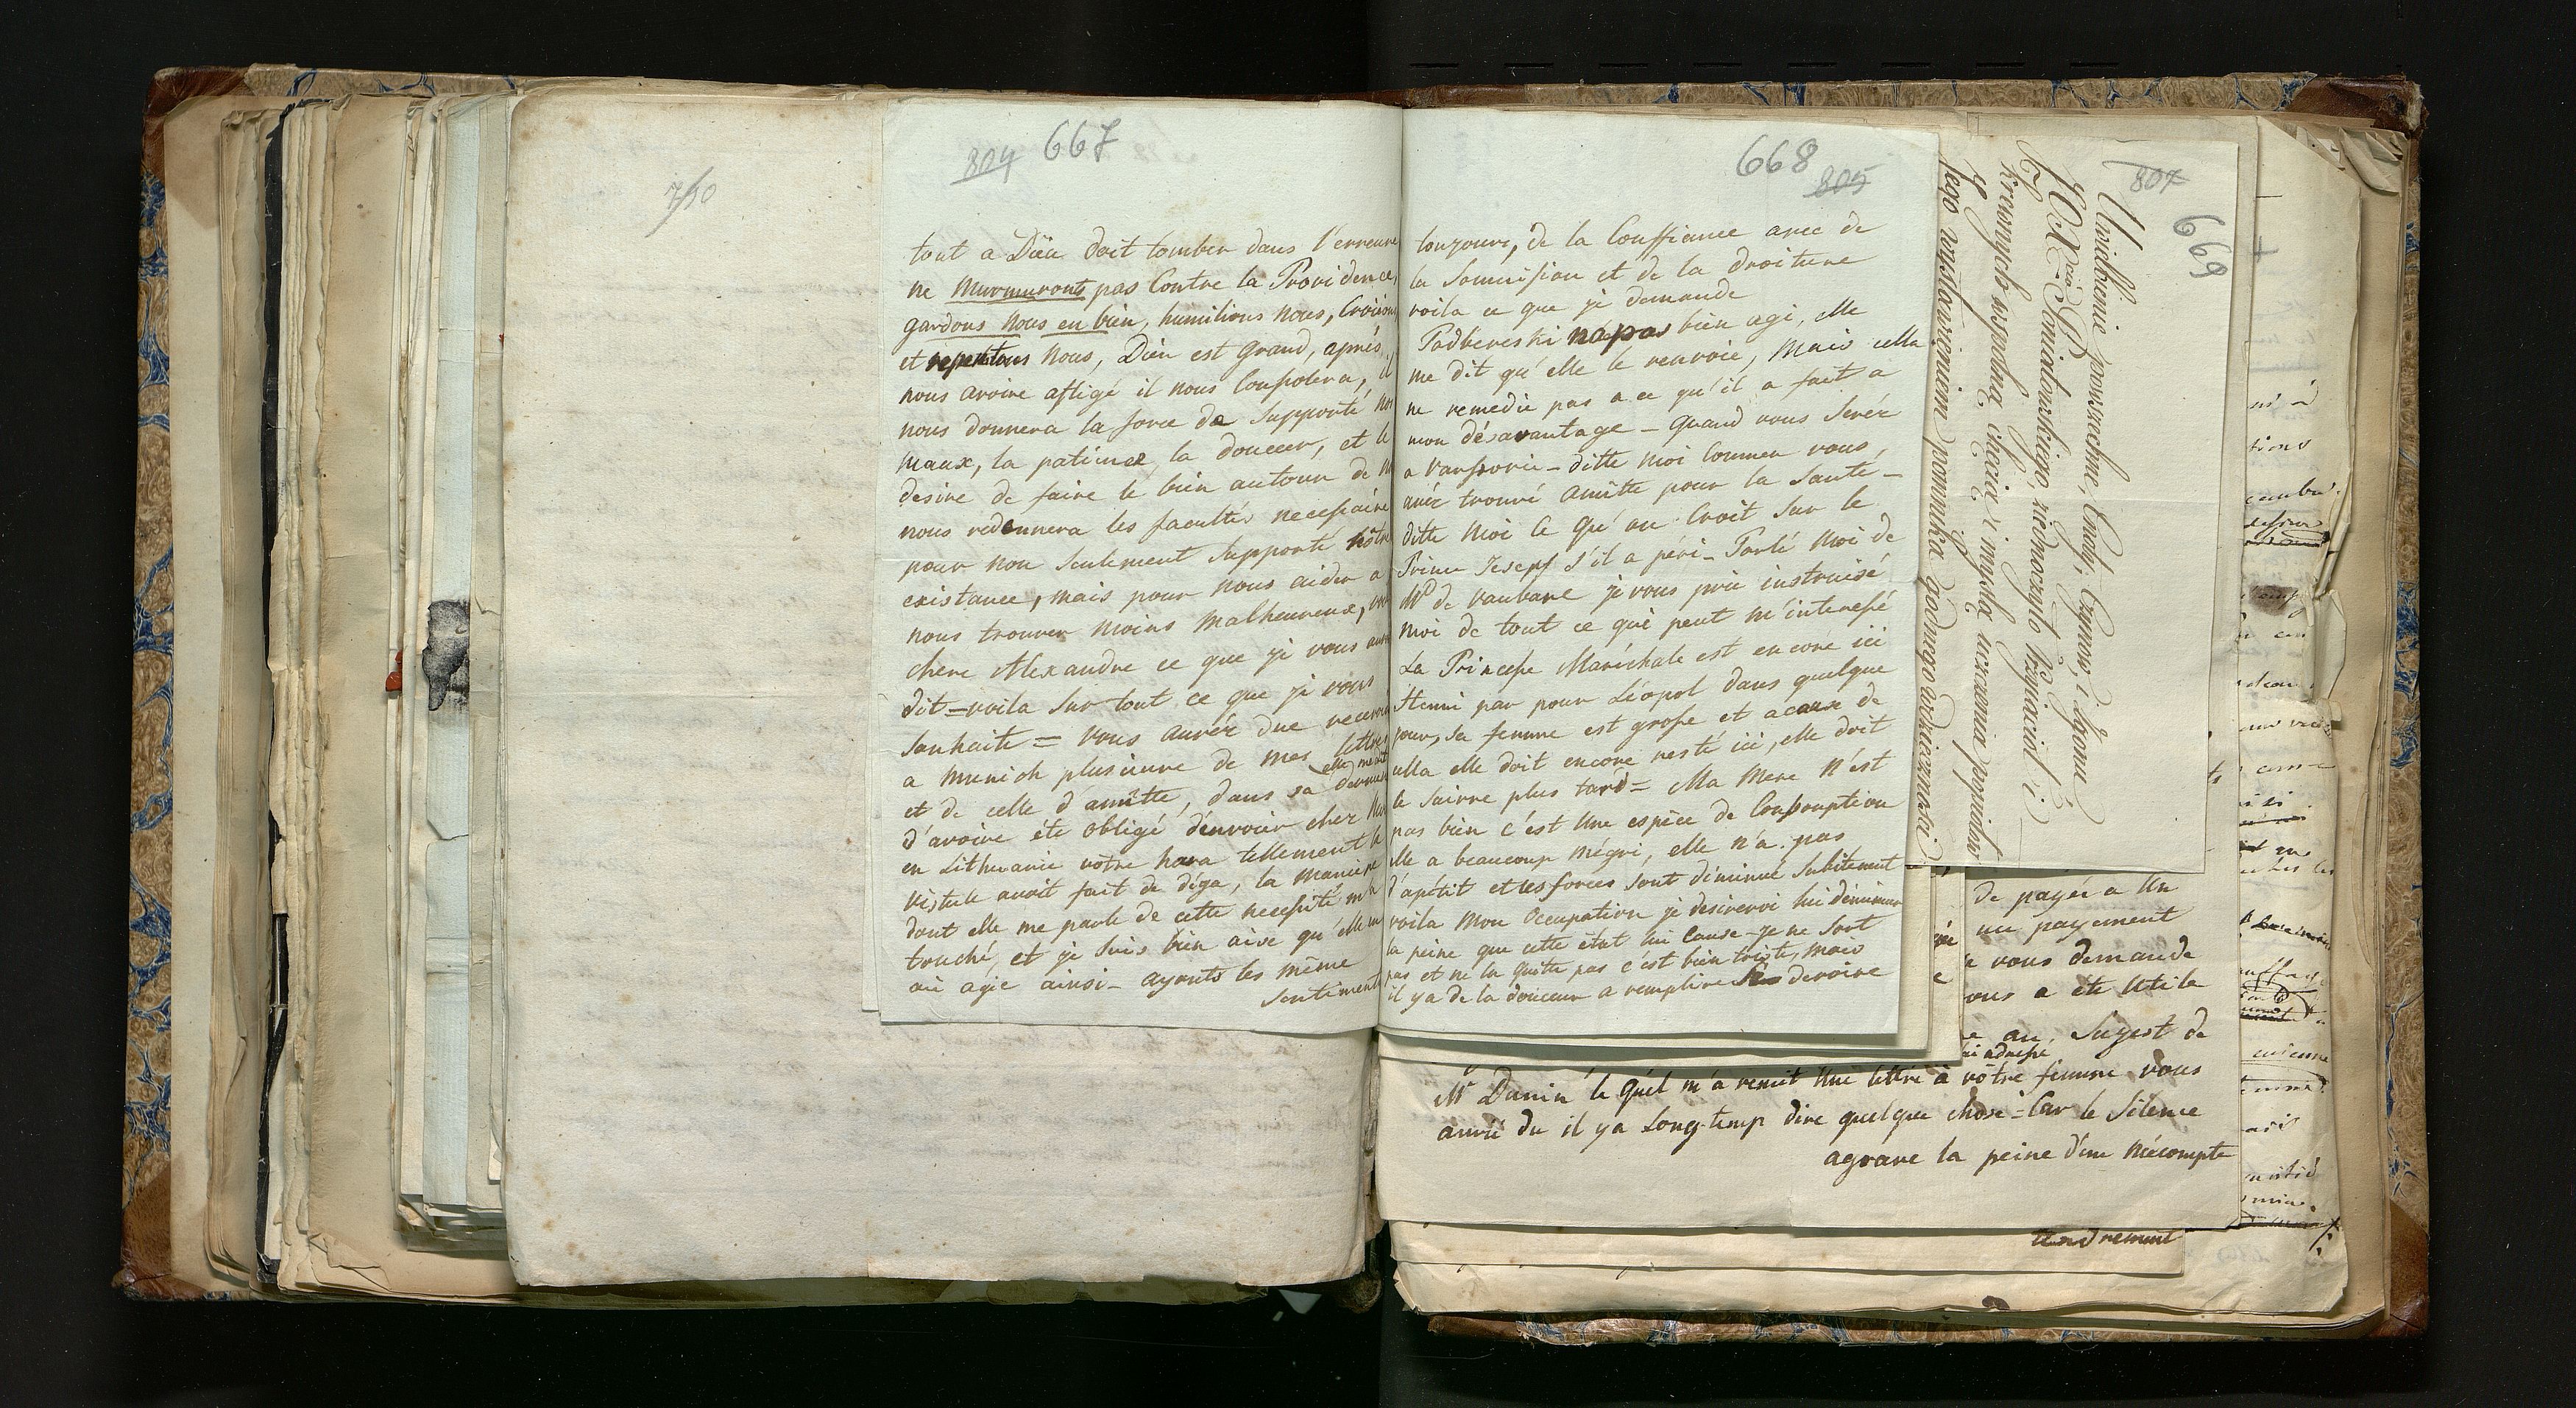 750
804 667
tout a Diëu doit tomber dans l'erreure
ne Murmuronts pas Contre la Providence,
gardons nous en bien, humilions nous, Croiions
et repentons nous, Diëu est grand, aprés
nous avoire afligé il nous Consolera, il
nous donnera la force de supporté nos
maux, la patience, la douceur, et le
desire de faire le bien autour de
nous redonnera les facultés necessaire
pour non seulement supporté nôtre
existance, mais pour nous aider a
nous trouver moins malheureux,
chere Alexandre ce que je vous
dit = voila sur tout ce que je vous
souhaite = vous aurér due recevoir
a Munich plusieure de mes lettres
et de celle d'amitte, dans sa derniere
elle me dit
d'avoire été obligé d'envoier cher
en Lithuanie votre hara tellement la
vistule avoit fait de déga, la maniere
dont elle me parle de cette necessité m'a
touché, et je suis bien aise qu'elle
ait agie ainsi - ayants les même
sentiments
668 805
toujours, de la Confiance avec de
la Soumission et de la droiture
voila ce que je demande
Padbereski n'a pas bien agi, elle
me dit qu'elle le renvoie, mais cella
ne remedie pas a ce qu'il a fait a
mon désavantage - quand vous serér
a Varsovie - ditte moi Commen vous
avér trouvé amitte pour la Santé -
ditte moi Ce qu'on Croit sur le
Prince Joseph s'il a péri - Parlé moi de
Md de Vauban je vous prie instruisé
moi de tout ce qui peut m'interessé
La Princesse Maréchale est encore ici
Henri par pour Léopol dans quelque
jour, sa femme est grosse et acause de
cella elle doit encore resté ici, elle doit
le suivre plus tard = Ma Mere n'est
pas bien c'est une espèce de Consomption
elle a beaucoup mégri, elle n'a pas
d'apétit et les forces sont diminué subitement
voila mon Occupation je desireroi lui diminuer
la peine que cette état lui cause - je ne sort
pas et ne la quitte pas c'est bien triste, mais
il y a de la douceur a remplire ses devoire
807 669
Uwielbienie powszechne, Cnoty, Czynow, i Zgonu
JOXcia Poniatowskiego, ziednoczyło Przyiaciół i
Krewnych w spolną chęcią i myślą uczczenia popiołow
Jego wystawieniem pomnika godnego wdzięcznosci
De payér a Un
un payement
vous demande
vous a été Utile
au Sujest de
Mr Dunin le quel m'a remit Une lettre à vôtre femme vous
aurié du il y a Long-temp dire quelque chose = Car le Silence
agrave la peine d'un mécompte
tendrement